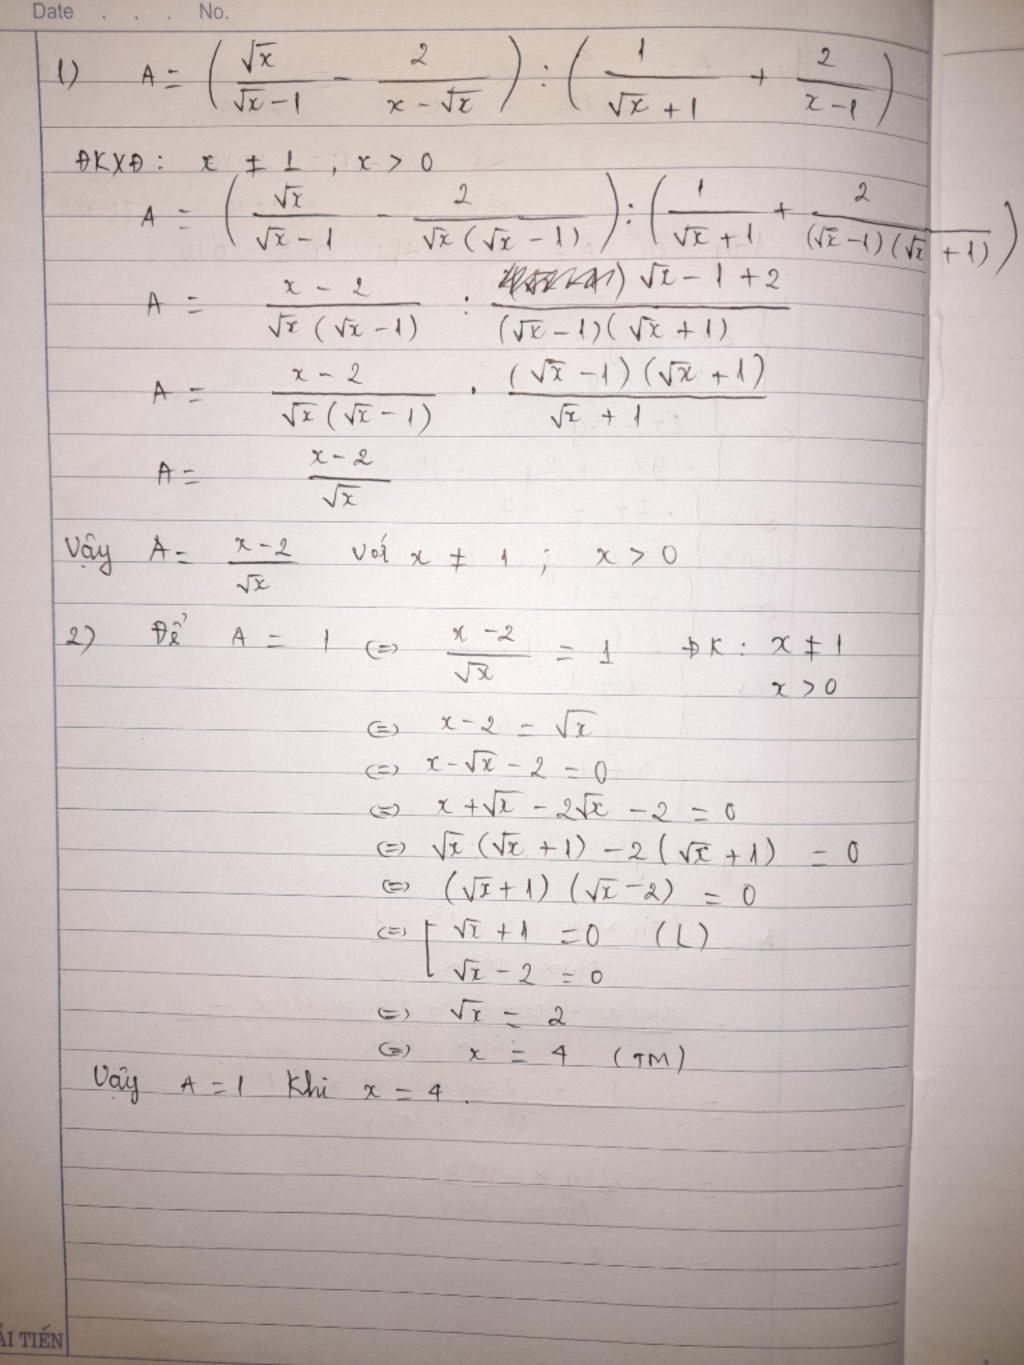 Date . . . No.
1) A = (√x/(√x-1) - 2/(x-√x)) : (1/(√x+1) + 2/(x-1))
ĐKXĐ: x ≠ 1 ; x > 0
A = (√x/(√x-1) - 2/(√x(√x-1))) : (1/(√x+1) + 2/((√x-1)(√x+1)))
A = (x-2)/(√x(√x-1)) : (√x-1+2)/((√x-1)(√x+1))
A = (x-2)/(√x(√x-1)) . ((√x-1)(√x+1))/(√x+1)
A = (x-2)/√x
Vậy A = (x-2)/√x với x ≠ 1 ; x > 0
2) Để A = 1 (=) (x-2)/√x = 1 ĐK: x ≠ 1
x > 0
(=) x-2 = √x
(=) x-√x-2 = 0
(=) x+√x-2√x-2 = 0
(=) √x(√x+1)-2(√x+1) = 0
(=) (√x+1)(√x-2) = 0
(=) [ √x+1 = 0 (L)
√x-2 = 0
(=) √x = 2
(=) x = 4 (TM)
Vậy A = 1 Khi x = 4.
ẢI TIẾN